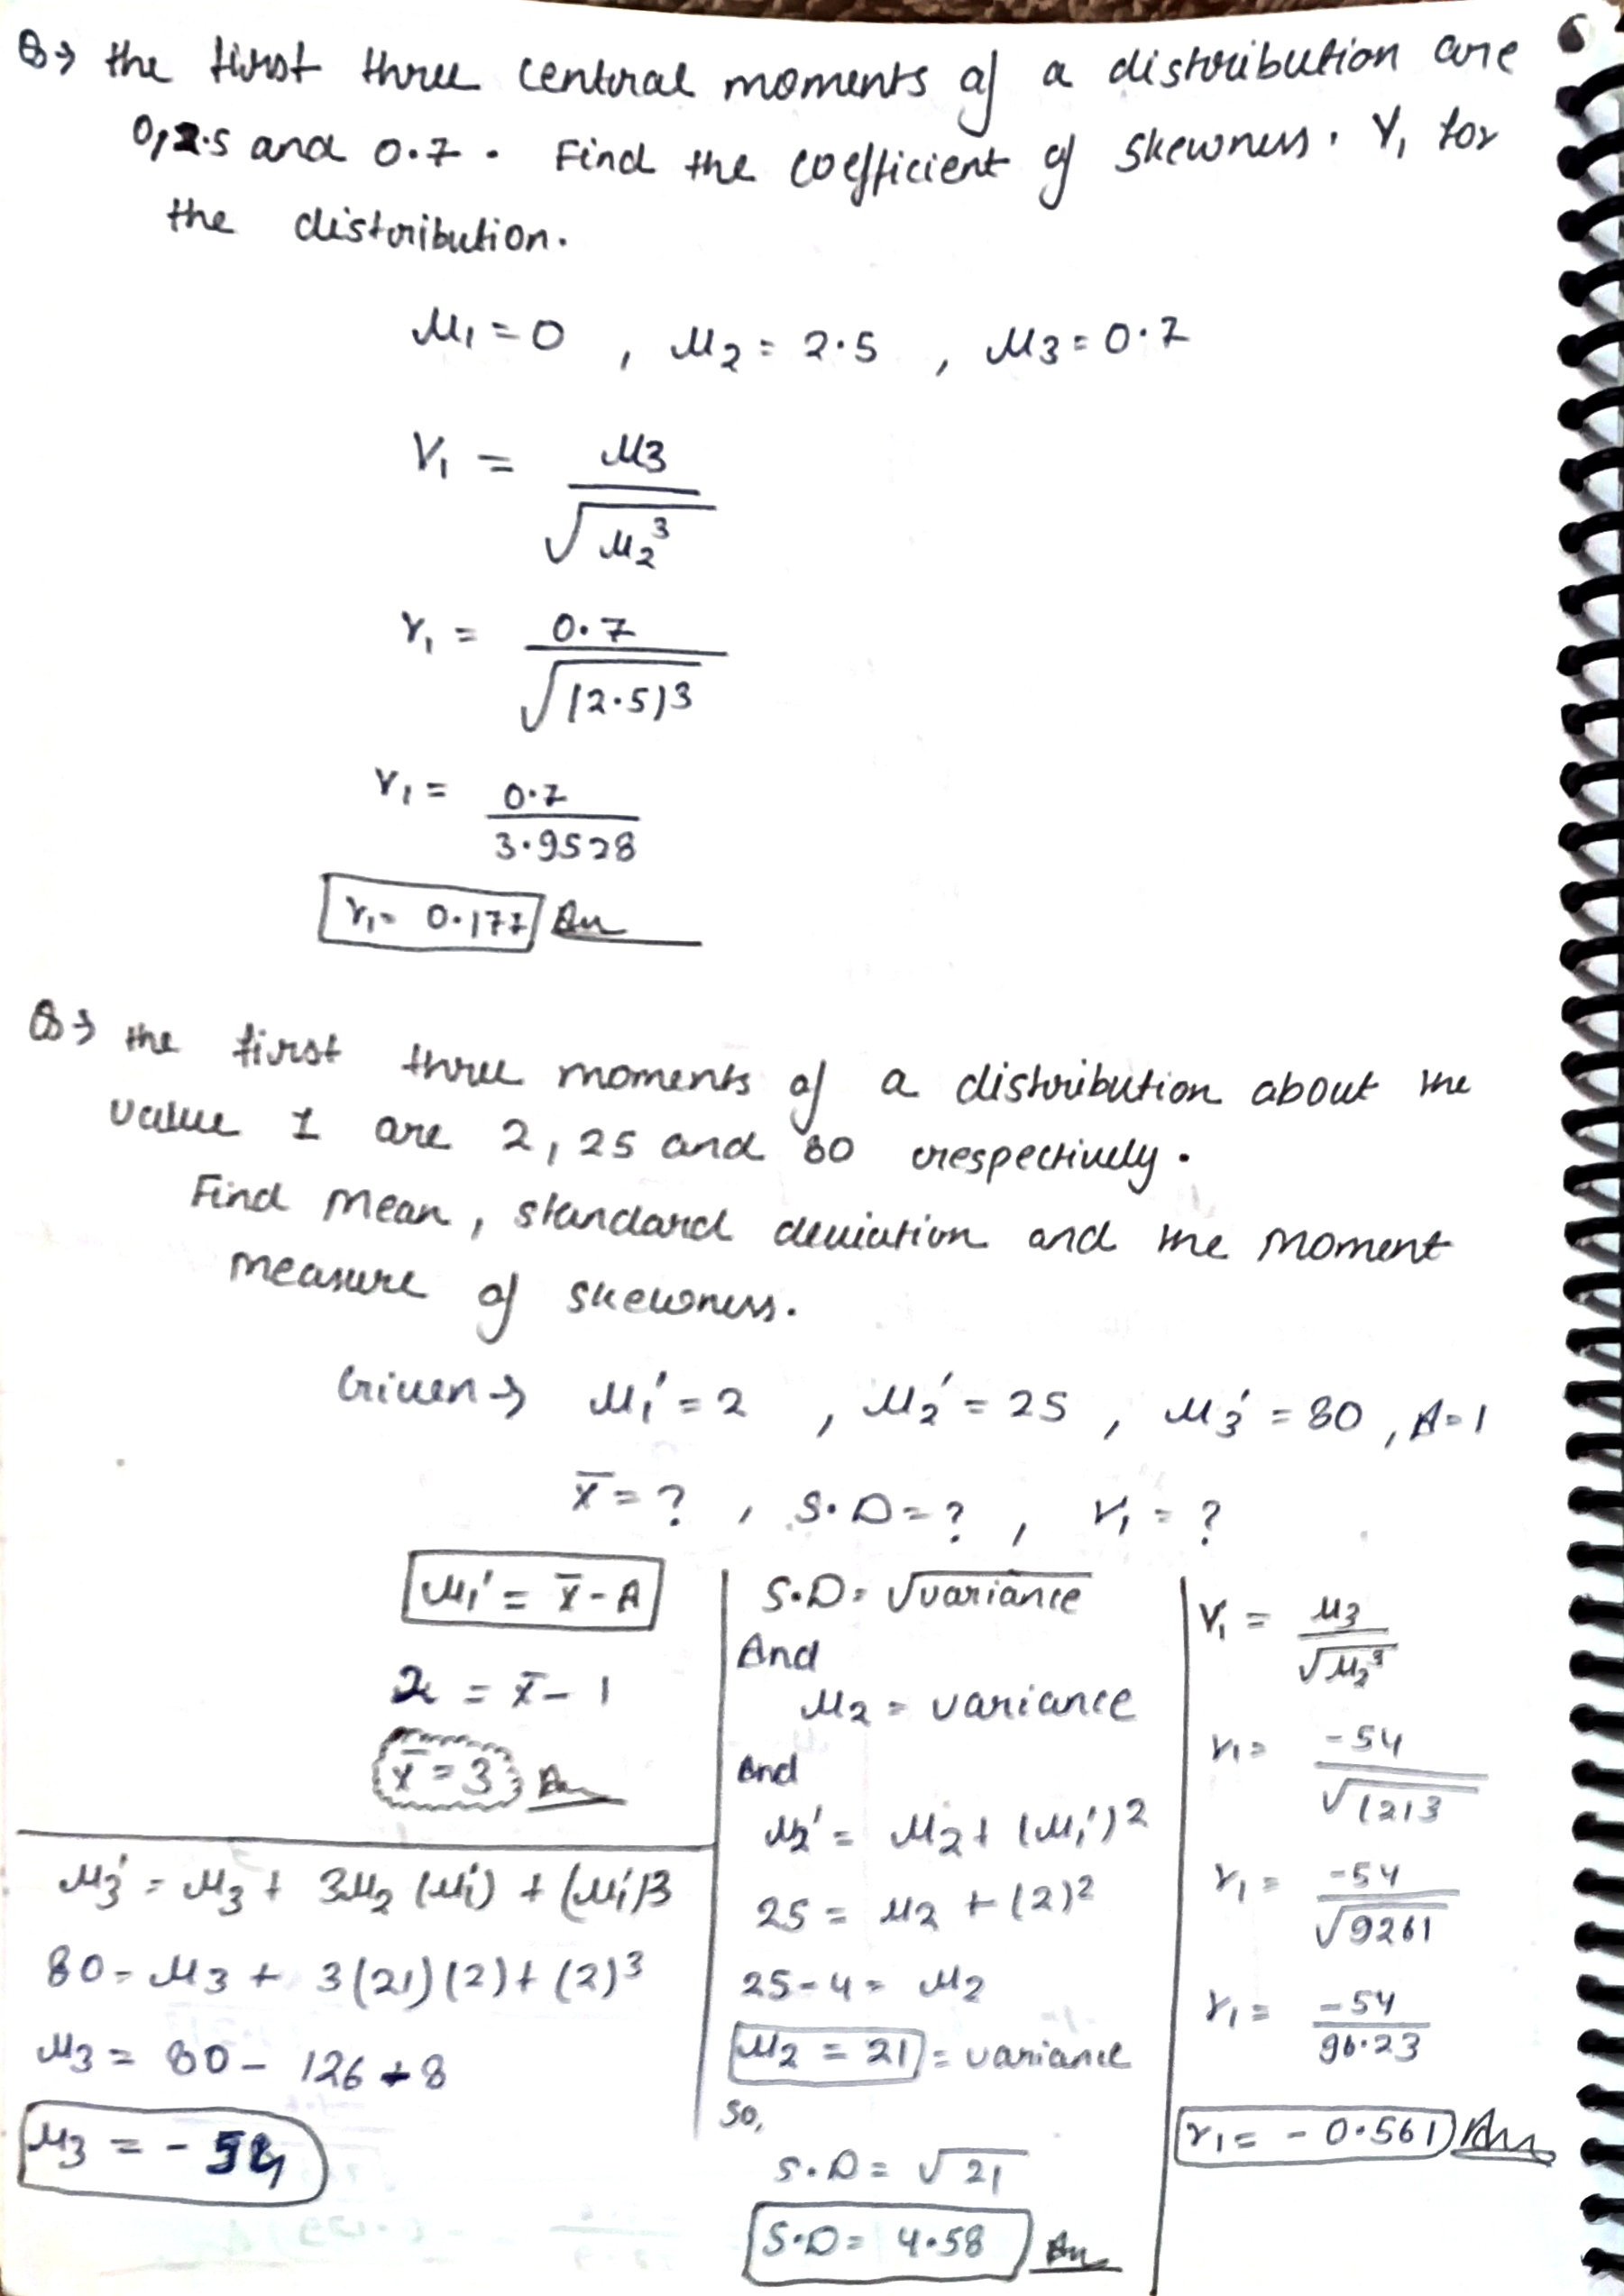 Q→ the first three central moments of a distribution are
0, 2.5 and 0.7. Find the coefficient of skewness. γ₁ for
the distribution.
μ₁ = 0 , μ₂ = 2.5 , μ₃ = 0.7
γ₁ = μ₃ / √μ₂³
γ₁ = 0.7 / √(2.5)³
γ₁ = 0.7 / 3.9528
γ₁ = 0.177 Ans
Q→ the first three moments of a distribution about the
value 1 are 2, 25 and 80 respectively.
Find mean, standard deviation and the moment
measure of skewness.
Given→ μ₁' = 2 , μ₂' = 25 , μ₃' = 80 , A = 1
x̄ = ? , S.D = ? , γ₁ = ?
μ₁' = x̄ - A
2 = x̄ - 1
x̄ = 3 Ans
μ₃' = μ₃ + 3μ₂ (μ₁') + (μ₁')3
80 = μ₃ + 3(21)(2) + (2)³
μ₃ = 80 - 126 + 8
μ₃ = - 54
S.D = √variance
And
μ₂ = variance
And
μ₂' = μ₂ + (μ₁')2
25 = μ₂ + (2)²
25 - 4 = μ₂
μ₂ = 21 = variance
so,
S.D = √21
S.D = 4.58 Ans
γ₁ = μ₃ / √μ₂³
γ₁ = -54 / √(21)3
γ₁ = -54 / √9261
γ₁ = -54 / 96.23
γ₁ = - 0.561 Ans